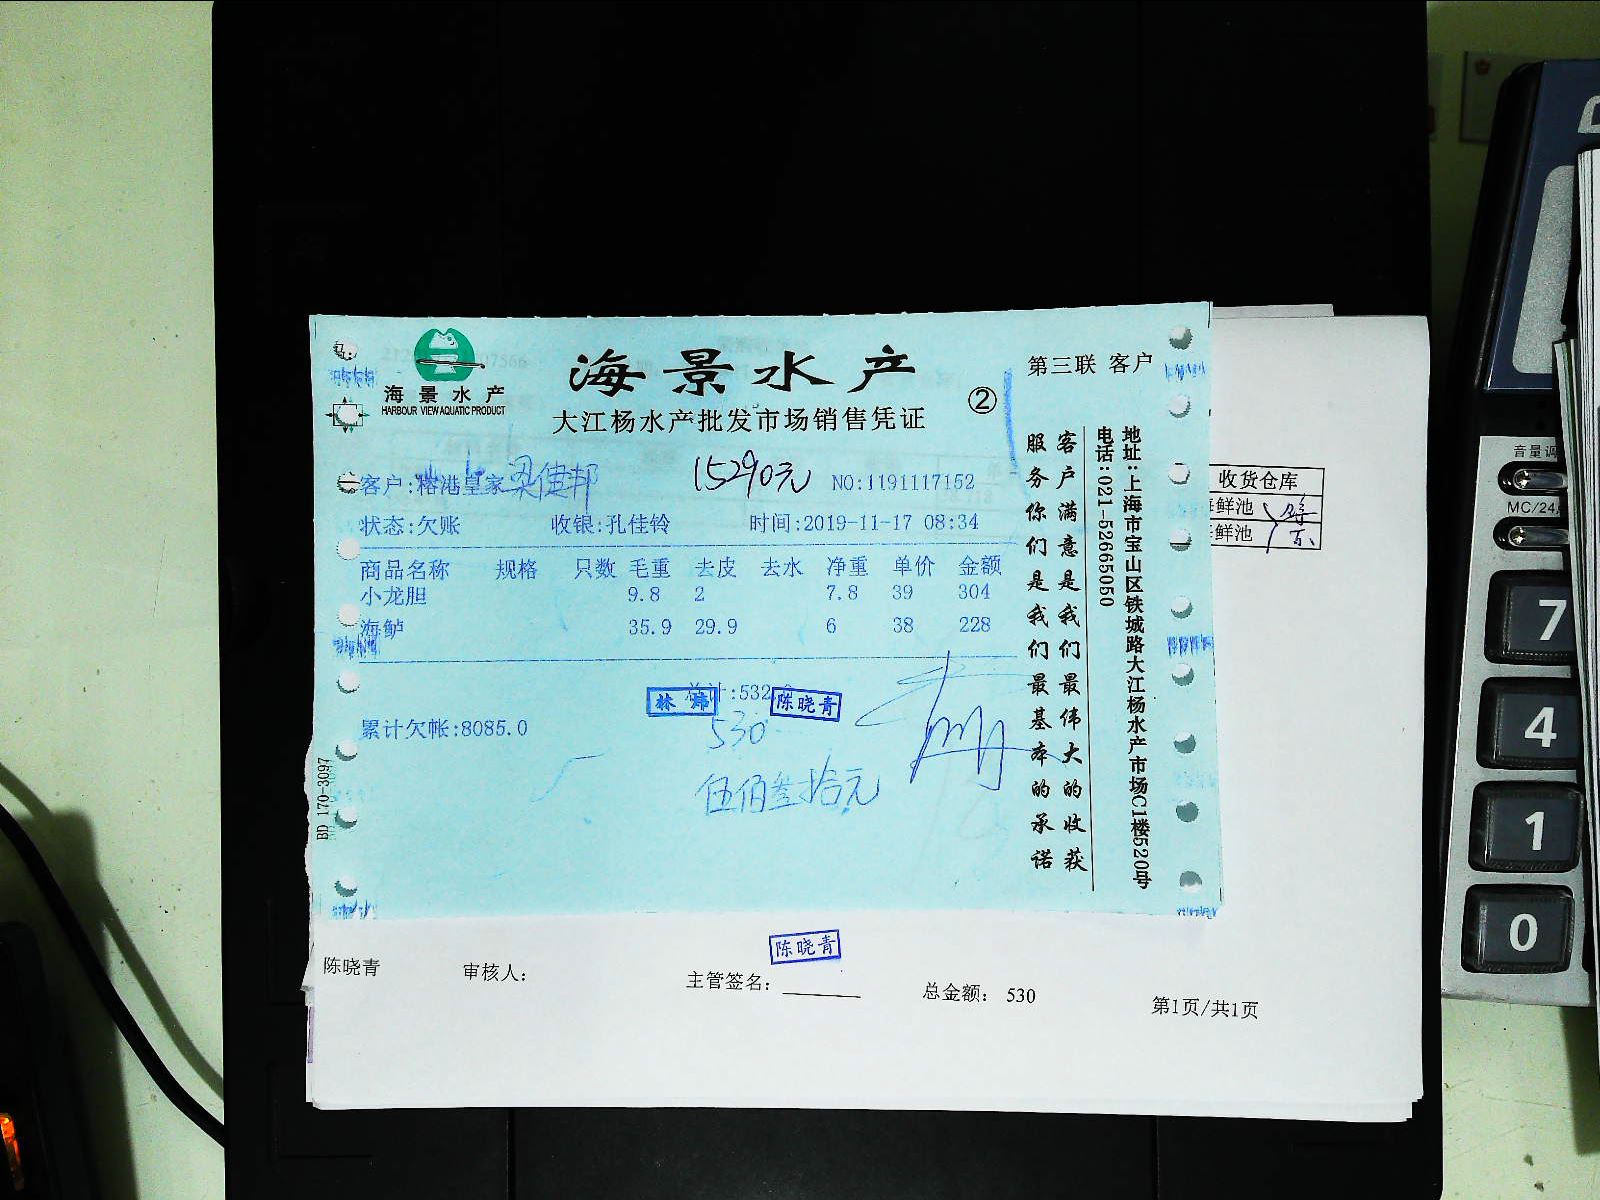 海景水产
HARBOUR VIEW AQUATIC PRODUCT
海景水产
大江杨水产批发市场销售凭证
②
第三联 客户
客户:榕港皇家梁健邦
15290元
NO:1191117152
状态:欠账 收银:孔佳铃 时间:2019-11-17 08:34
商品名称 规格 只数 毛重 去皮 去水 净重 单价 金额
小龙胆 9.8 2 7.8 39 304
海鲈 35.9 29.9 6 38 228
总计:532.0
林炜
陈晓青
累计欠帐:8085.0
530
伍佰叁拾元
BD 170-3097
客户满意是我们最伟大的收获
服务你们是我们最基本的承诺
地址:上海市宝山区铁城路大江杨水产市场C1楼520号
电话:021-52665050
收货仓库
鲜池
鲜池
陈晓青
陈晓青 审核人: 主管签名: 总金额: 530 第1页/共1页
音量调
MC/24
7
4
1
0